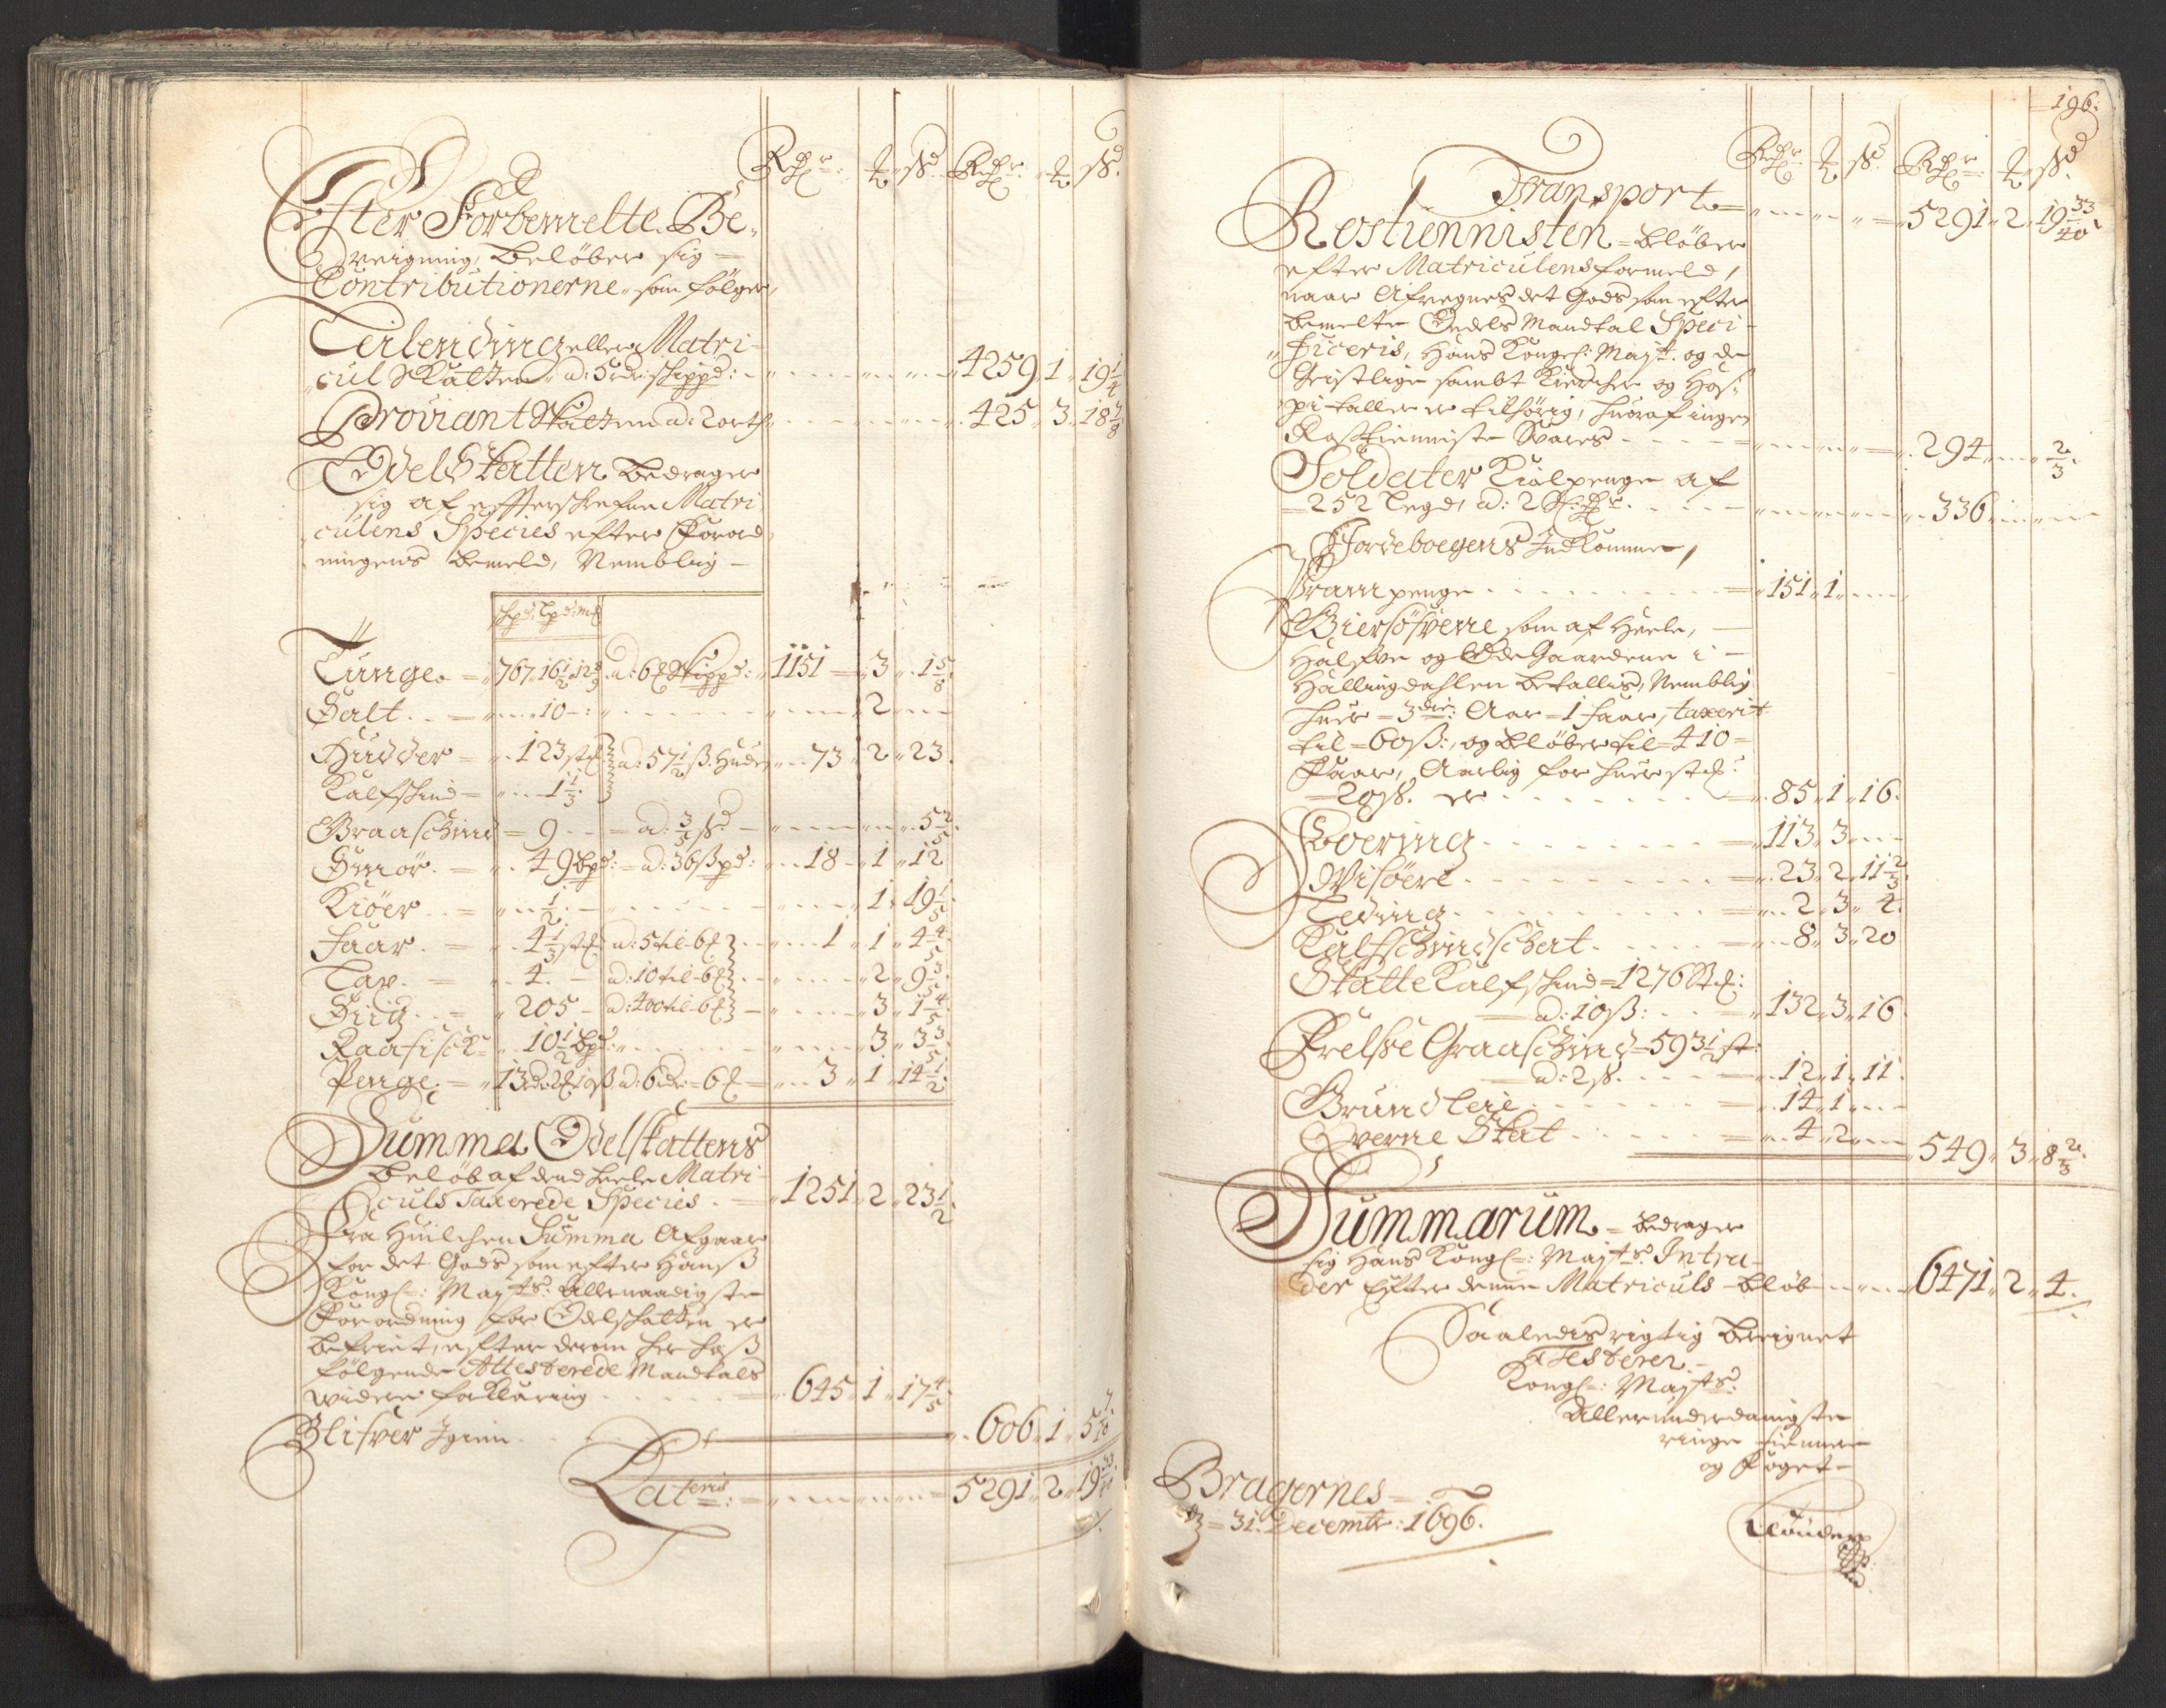 Rdr: ß Rdr: ß
Efter Forbemelte Be
reigning, beløber sig
Contributionerne som følger,
Leilending eller Matri
cul Skatten a: 5 rdr: skippd: 4259 1 19 1/4
Proviant Skatten a: 2 ort 425 3 18 7/8
Odel Skatten bedrager
sig af effterskrefne Matri
culens Species efter Forord
ningens bemeld, Nemblig
Tunge 767 16 1/2 a: 6 skippd: 1151 3 1 5/8
Salt 10 2
Hudder 123 stk a: 57 1/2 ß: Huden 73 2 23
Kalfskind 1 1/3
Graaschind 9 a: 3/5 ß 5 2/5
Smør 49 bpd: a: 36 ß pd: 18 1 12
Kiøer 1/2 1 19 1/5
Faar 4 1/3 stk a: 5 til 6 1 1 4 4/5
Lax 4 a: 10 til 6 2 9 3/5
Siig 205 a: 400 til 6 3 1 4/5
Raafisck 10 1/2 bpd 3 3 3/5
Penge 13 rdr 10 ß a: 6 dr 6 3 1 14 1/2
Summa Odelskattens
beløb af dend heele Matri
culs Taxerede Species 1251 2 23 1/2
Fra Huilchen Summa Afgaar
for det Gods som efter Hanß
Kongl: Mayts: Allernaadigste
Forordning for Odelschatten er
befriet, efter derom her hoß
følgende Attesterede Mandtals
widere forklaring 645 1 17 4/5
Blifver Igien 606 1 5 7/10
Lateris 5291 2 19 33/40
196.
Rdr: ß Rdr: ß
Transport 5291 2 19 33/40
Rostiennisten beløber
efter Matriculens formeld,
naar Afregnes det Gods som efter
bemelte Odels Mandtal Speci
ficeris, Hans Kongl: Mayt: og de
Geistlige sambt Kiercher og Hos
pitaller er tilhørig, huoraf ingen
Roßtienniste Svares 294 2/3
Soldater Kiolpenge af
252 Legd, a: 2 336
Jordebogens Indkomme,
Pram penge 151 1
Giersøfvene som af Heele,
Halfve og Øde Gaardene i
Hallingdahlen betallis, Nemblig
huer 3die: Aar 1 faar, taxerit
til 60 ß:, og beløber til 410
Faar, Aarlig for huer stk:
20 ß. er 85 1 16
Foering 113 3
Visøere 23 2 11 2/3
Leding 2 3 4
Kalfschindschat 8 3 20
Skatte Kalfskind 1276 Stk:
a: 10 ß: 132 3 16
Frelsse Graaschind 593 1/2 st:
a: 2 ß. 12 1 11
Grundleie 14 1
Qverne Skat 4 2 549 3 8 2/3
Summarum bedrager
sig Hans Kongl: Mayts: Intra
der Efter denne Matriculs beløb 6471 2 4
Saaledis rigtig bereignet
Testerer
Kongl: Mayts:
Allerunderdanigste
ringe tienner
og Foget
Bragernes
d 31 Decembr: 1696.